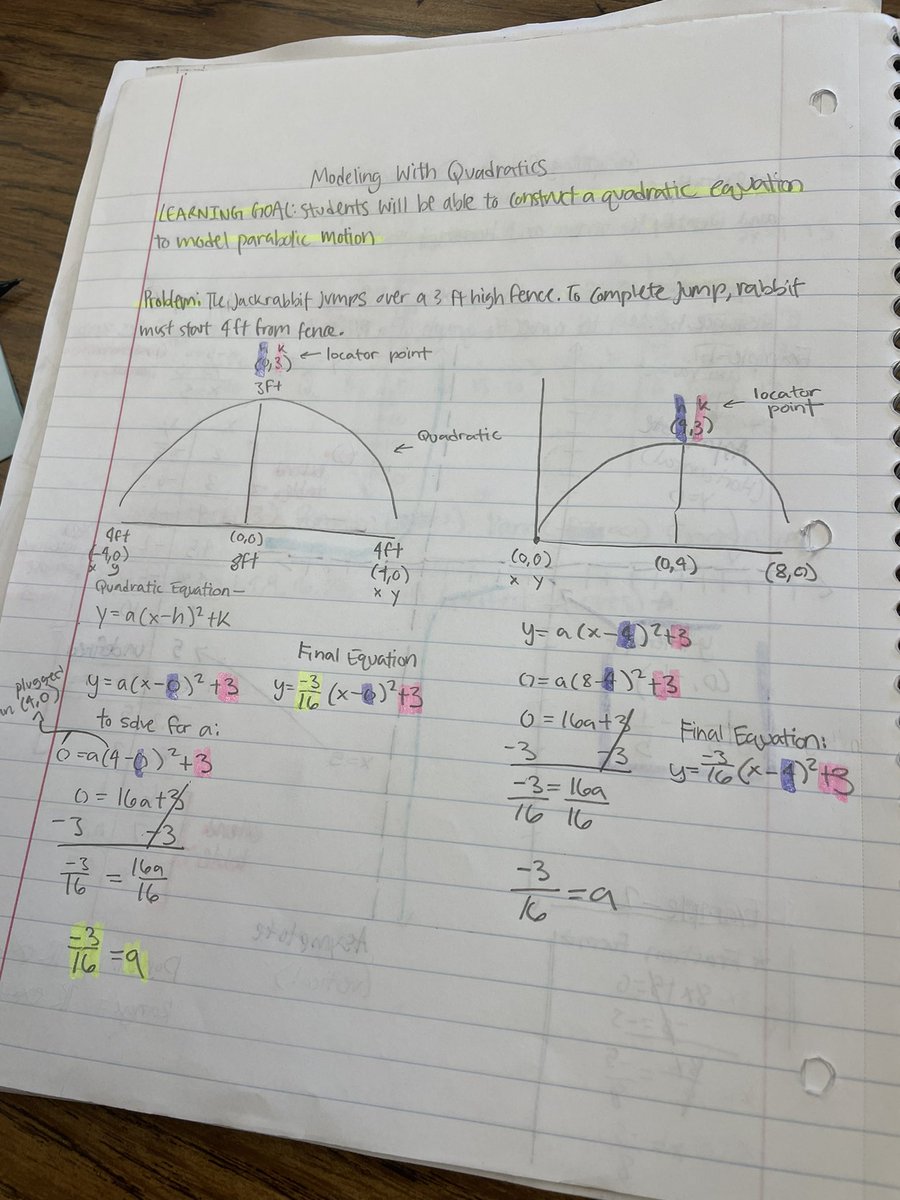 Modeling With Quadratics
LEARNING GOAL: students will be able to construct a quadratic equation
to model parabolic motion
Problem: The jackrabbit jumps over a 3 ft high fence. To complete jump, rabbit
must start 4ft from fence.
h k
(0,3) ← locator point
3ft
← Quadratic
4ft
(-4,0)
x y
(0,0)
8ft
4ft
(4,0)
x y
h k ← locator point
(4,3)
(0,0)
x y
(0,4)
(8,0)
Quadratic Equation –
y=a(x-h)²+k
y=a(x-0)²+3
plugged in (4,0)
to solve for a:
0=a(4-0)²+3
0=16a+3
-3 -3
-3/16 = 16a/16
-3/16 = a
Final Equation
y=-3/16(x-0)²+3
y=a(x-4)²+3
0=a(8-4)²+3
0=16a+3
-3 -3
-3/16 = 16a/16
-3/16 = a
Final Equation:
y=-3/16(x-4)²+3